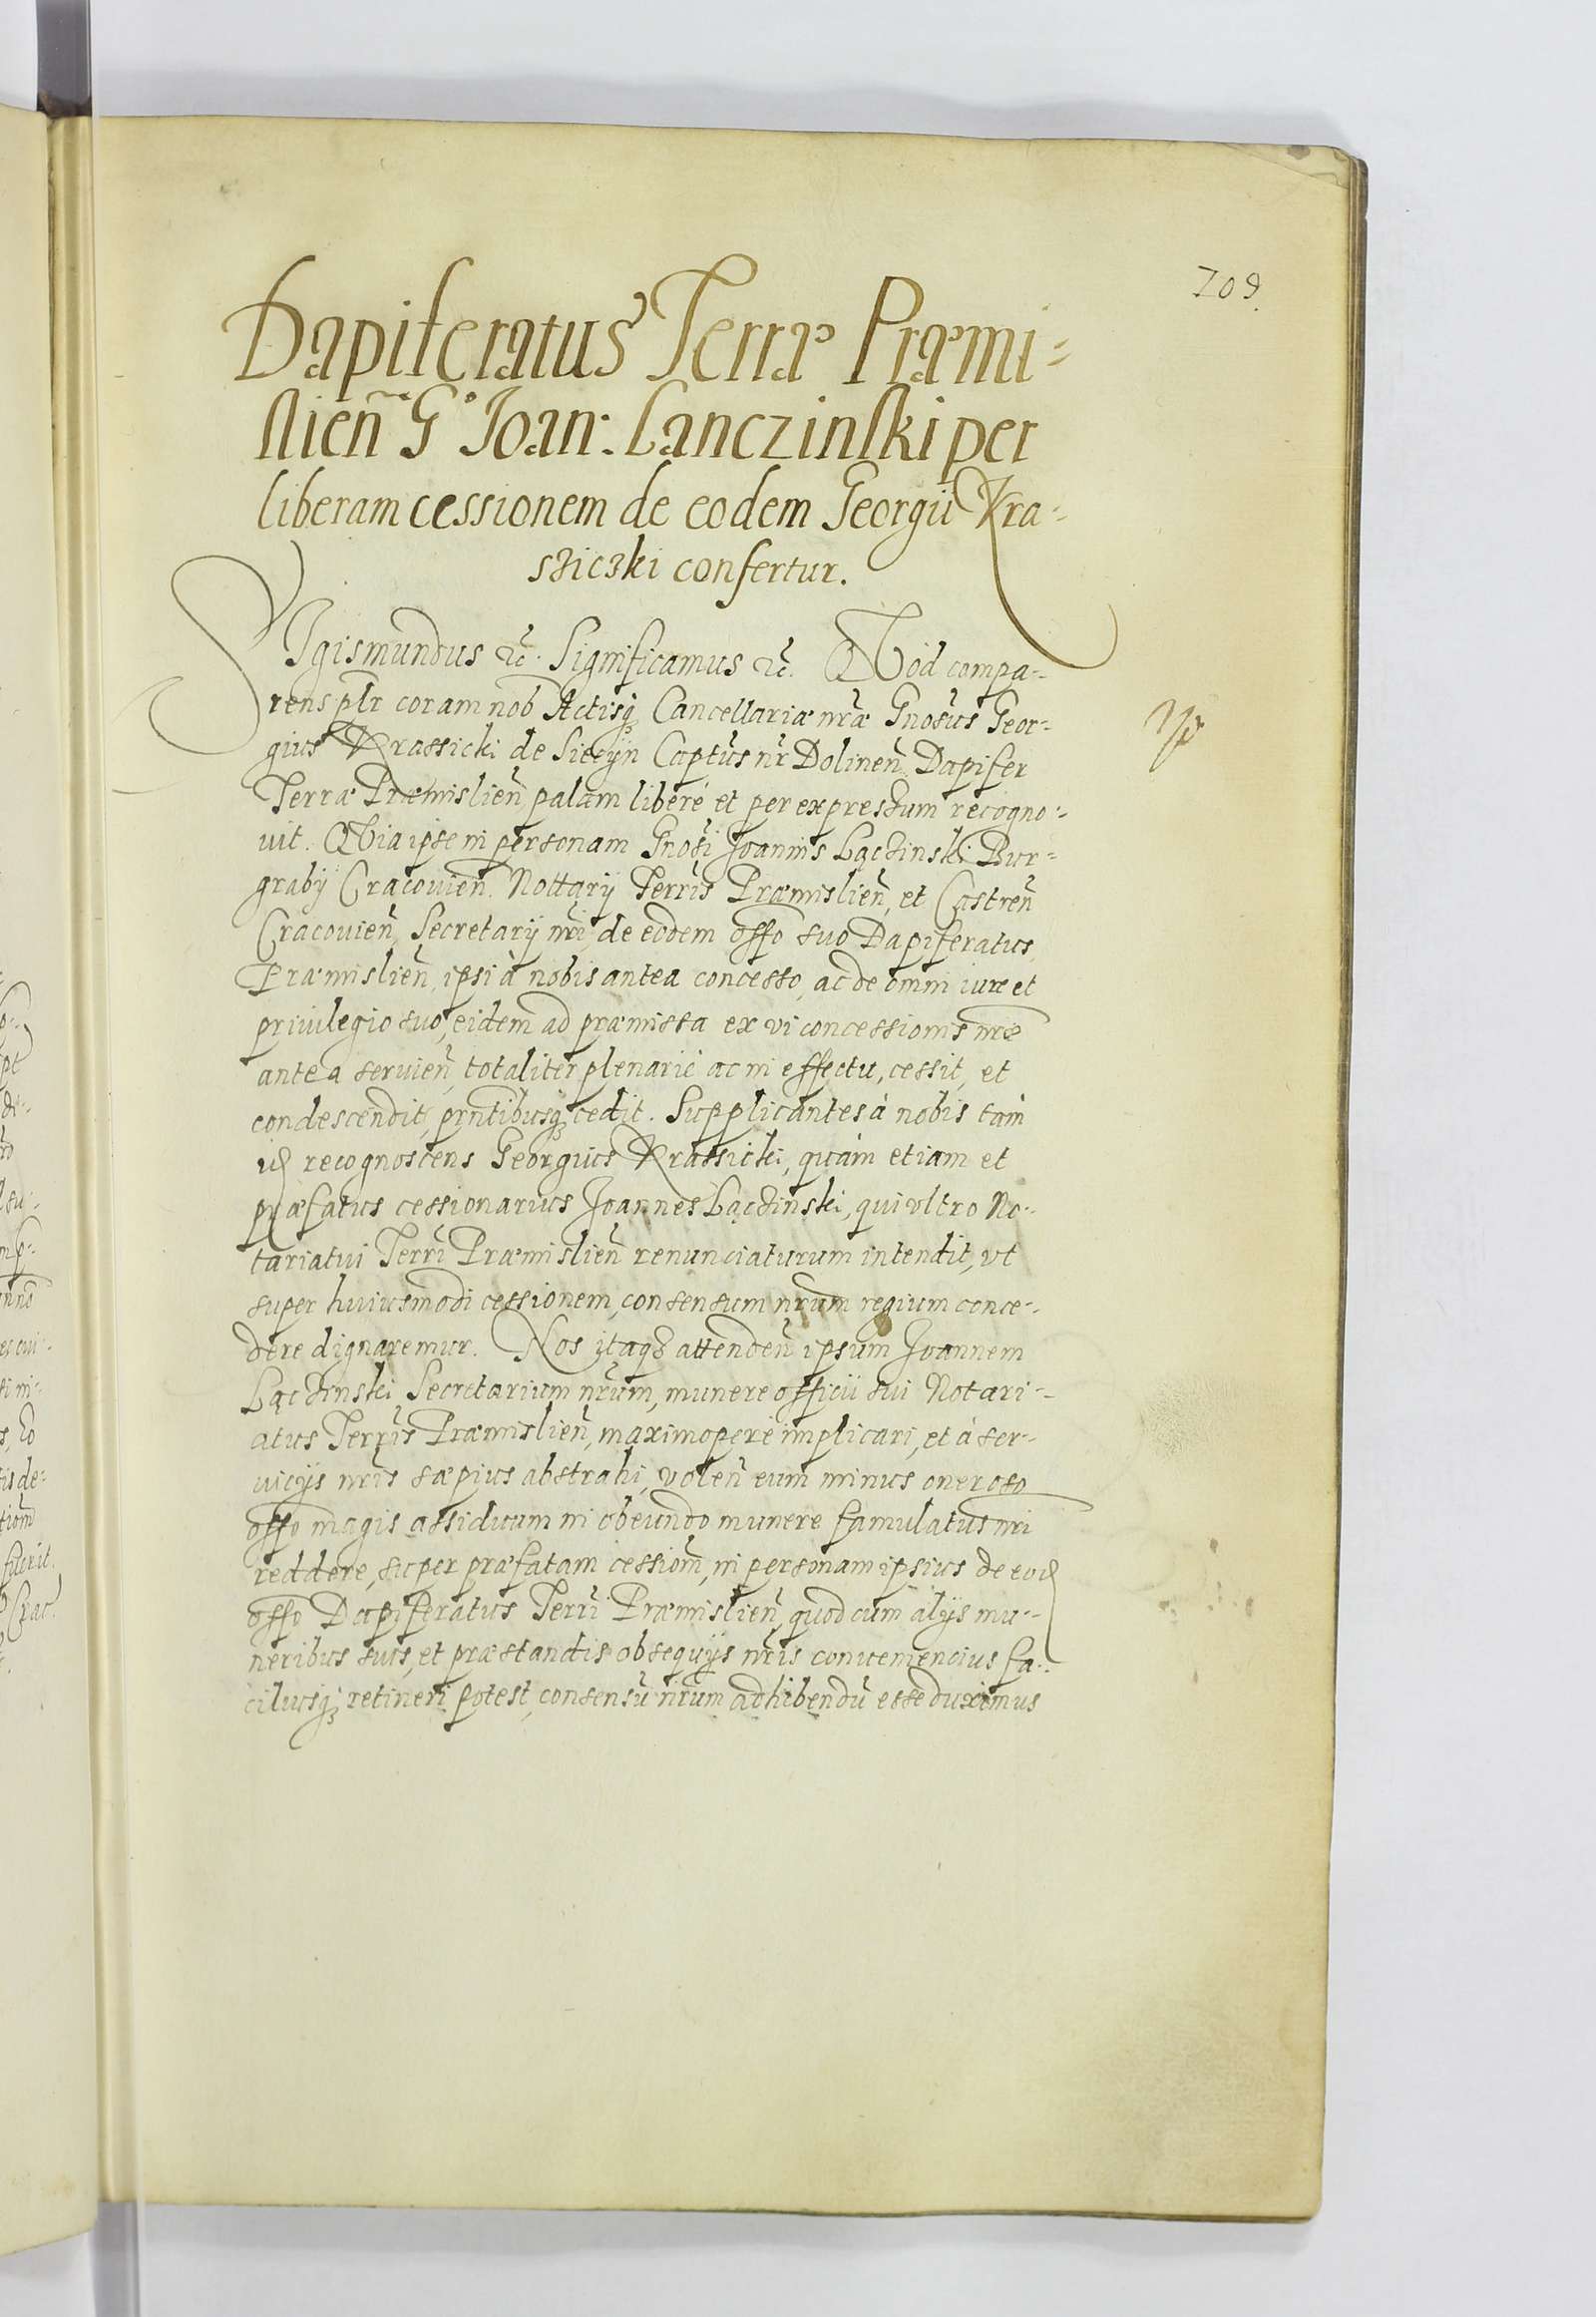 209.
Dapiferatus Terræ Præmi-
slien̄ G° Ioan: Lanczinski per
liberam cessionem de eodem Georgii Kra-
sziczki confertur.
SIgismundus &c̄. Significamus &c̄. Quod compa-
rens pl̄r coram nob̄ Actisq₃ Cancellariæ nr̄æ Gnosus Geor-
gius Krassicki de Siecÿn Captūs nr̄ Dolinen̄ Dapifer
Terræ Præmislien̄ palam liberè et per expressum recogno-
uit. Quia ipse in personam Gnosi Joannis Łączinski Bur-
grabÿ Cracouien̄. Nottarÿ Terrīs Præmislien̄, et Castren̄
Cracouien̄, Secretarÿ nr̄i, de eodem off̄o suo Dapiferatus
Præmislien̄, ipsi à nobis antea concesso, ac de omni iure et
priuilegio suo, eidem ad præmissa ex vi concessionis nr̄æ
antea seruien̄, totaliter plenariè ac in effectu, cessit, et
condescendit, prn̄tibusq₃ cedit. Supplicantes à nobis tàm
id recognoscens Georgius Krassicki, quàm etiam et
præfatus cessionarius Joannes Łączinski, qui vltro No-
tariatui Terrī Præmislien̄ renunciaturum intendit, vt
super huiusmodi cessionem, consensum nr̄um regium conce-
dere dignaremur. Nos itaq₃ attenden̄ ipsum Joannem
Łączinski Secretarium nr̄um, munere officii sui Notari-
atus Terrīs Præmislien̄, maximoperè implicari, et à ser-
uicÿs nr̄is sæpius abstrahi, volen̄ eum minus oneroso
off̄o magis assiduum in obeundo munere famulatus nr̄i
reddere, super præfatam cession̄, in personam ipsius de eod
off̄o Dapiferatus Terrī Præmislien̄, quod cum alÿs mu-
neribus suis, et præstandis obsequÿs nr̄is conueniencius fa-
ciliusq₃ retineri potest, consensū nr̄um adhibendū esse duximus